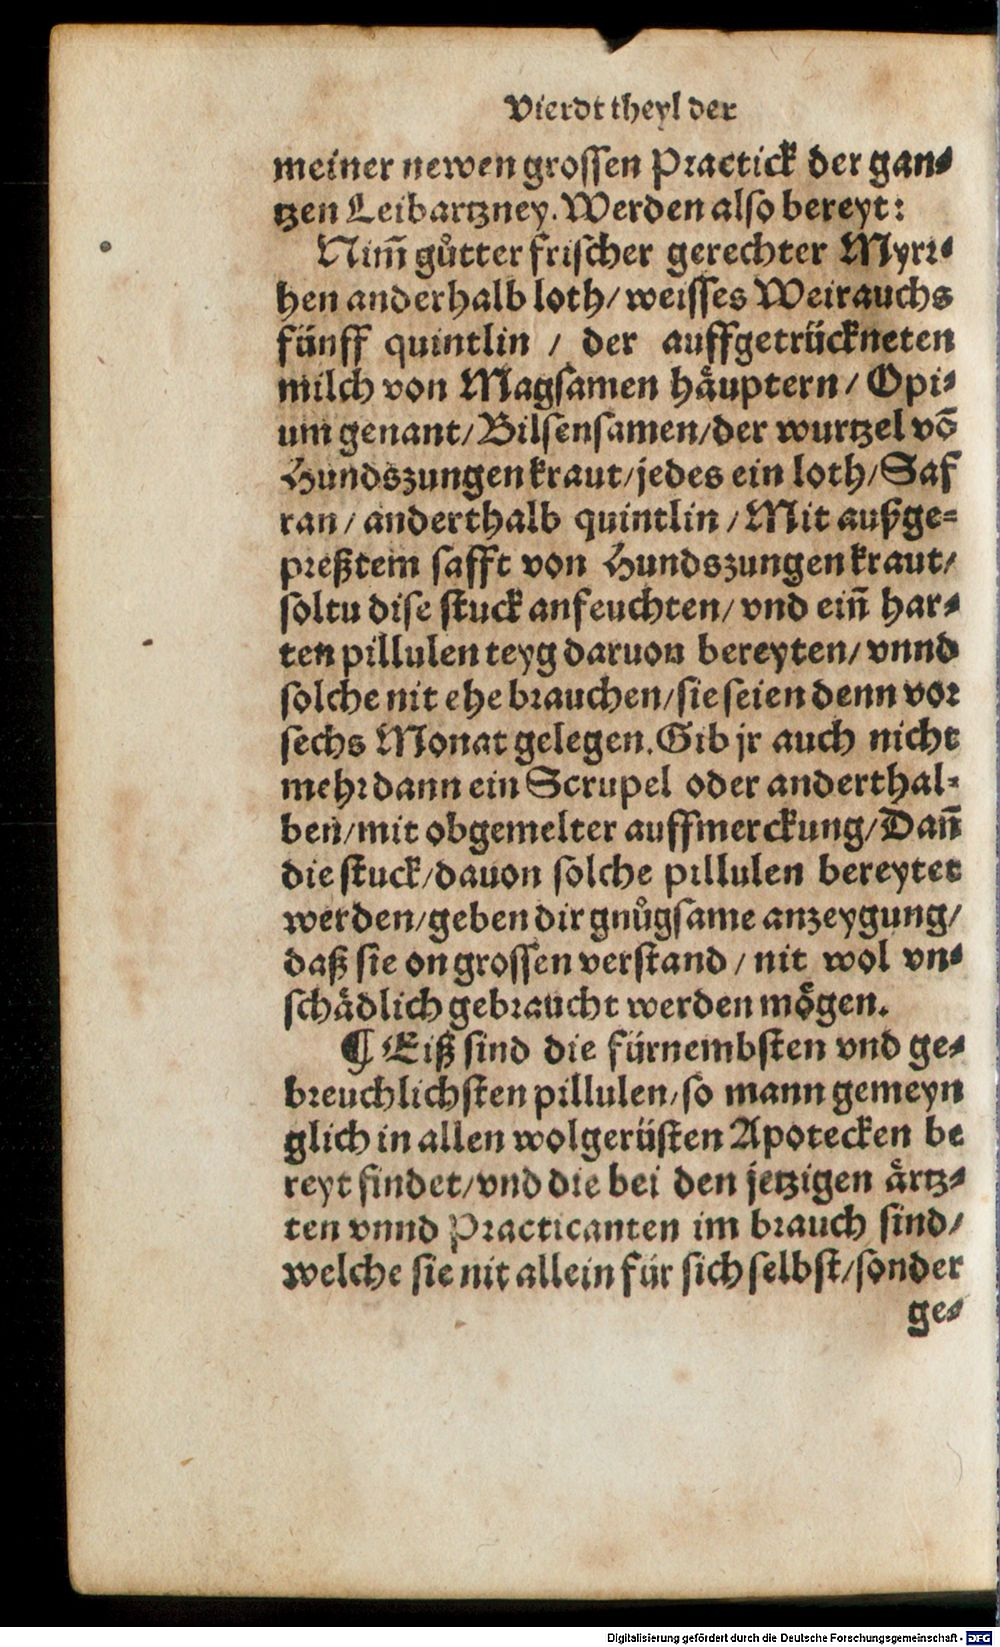 Vierdt theyl der
meiner newen grossen Practick der gan-
tzen Leibartzney. Werden also bereyt:
Nim̃ gůtter frischer gerechter Myrr-
hen anderhalb loth/ weisses Weirauchs
fünff quintlin / der auffgetrückneten
milch von Magsamen häuptern/ Opi-
um genant/ Bilsensamen/ der wurtzel võ
Hundszungen kraut/ jedes ein loth/ Saf
ran/ anderthalb quintlin / Mit außge-
preßtem safft von Hundszungen kraut/
soltu dise stuck anfeuchten/ vnd eiñ har-
ten pillulen teyg daruon bereyten/ vnnd
solche nit ehe brauchen/ sie seien denn vor
sechs Monat gelegen. Gib jr auch nicht
mehr dann ein Scrupel oder anderthal-
ben/ mit obgemelter auffmerckung/ Dañ
die stuck/ dauon solche pillulen bereytet
werden/ geben dir gnůgsame anzeygung/
daß sie on grossen verstand / nit wol vn-
schädlich gebraucht werden mögen.
¶ Eiß sind die fürnembsten vnd ge-
breuchlichsten pillulen/ so mann gemeyn
glich in allen wolgerüsten Apotecken be
reyt findet/ vnd die bei den jetzigen ärtz-
ten vnnd Practicanten im brauch sind/
welche sie nit allein für sich selbst/ sonder
ge-
Digitalisierung gefördert durch die Deutsche Forschungsgemeinschaft - DFG